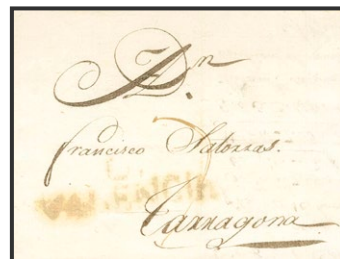 A Dn.
Francisco Satorras.
VALENCIA
Tarragona